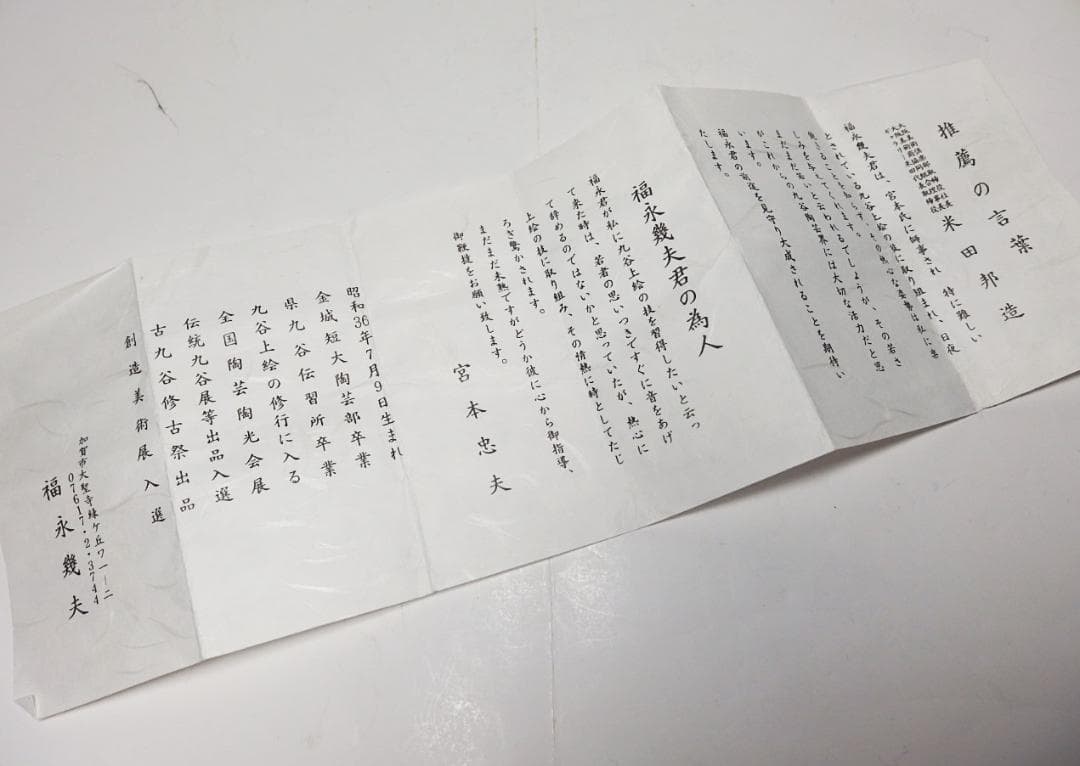 推薦の言葉
大阪美術倶楽部取締役社長
大阪美術商協同組合理事長
ギャラリー米田代表取締役
米田邦造
福永幾夫君は、宮本氏に師事され、特に難しい
とされている九谷上絵の技に取り組まれ、日夜
まだまだ若いと云われるでしょうが、その若さ
がこれからの九谷陶芸界には大切な活力だと思
います。
福永君の前途を見守り大成されることを期待い
たします。
福永幾夫君の為人
福永君が私に九谷上絵の技を習得したいと云っ
て来た時は、若者の思いつきですぐに音をあげ
て辞めるのではないかと思っていたが、熱心に
上絵の技に取り組み、その情熱に時としてたじ
ろぎ驚かされます。
まだまだ未熟ですがどうか彼に心から御指導、
御鞭撻をお願い致します。
宮本忠夫
昭和36年7月9日生まれ
金城短大陶芸部卒業
県九谷伝習所卒業
九谷上絵の修行に入る
全国陶芸陶光会展
伝統九谷展等出品入選
古九谷修古祭出品
創造美術展入選
加賀市大聖寺緑ケ丘ワ一ー二
07617・2・3744
福永幾夫